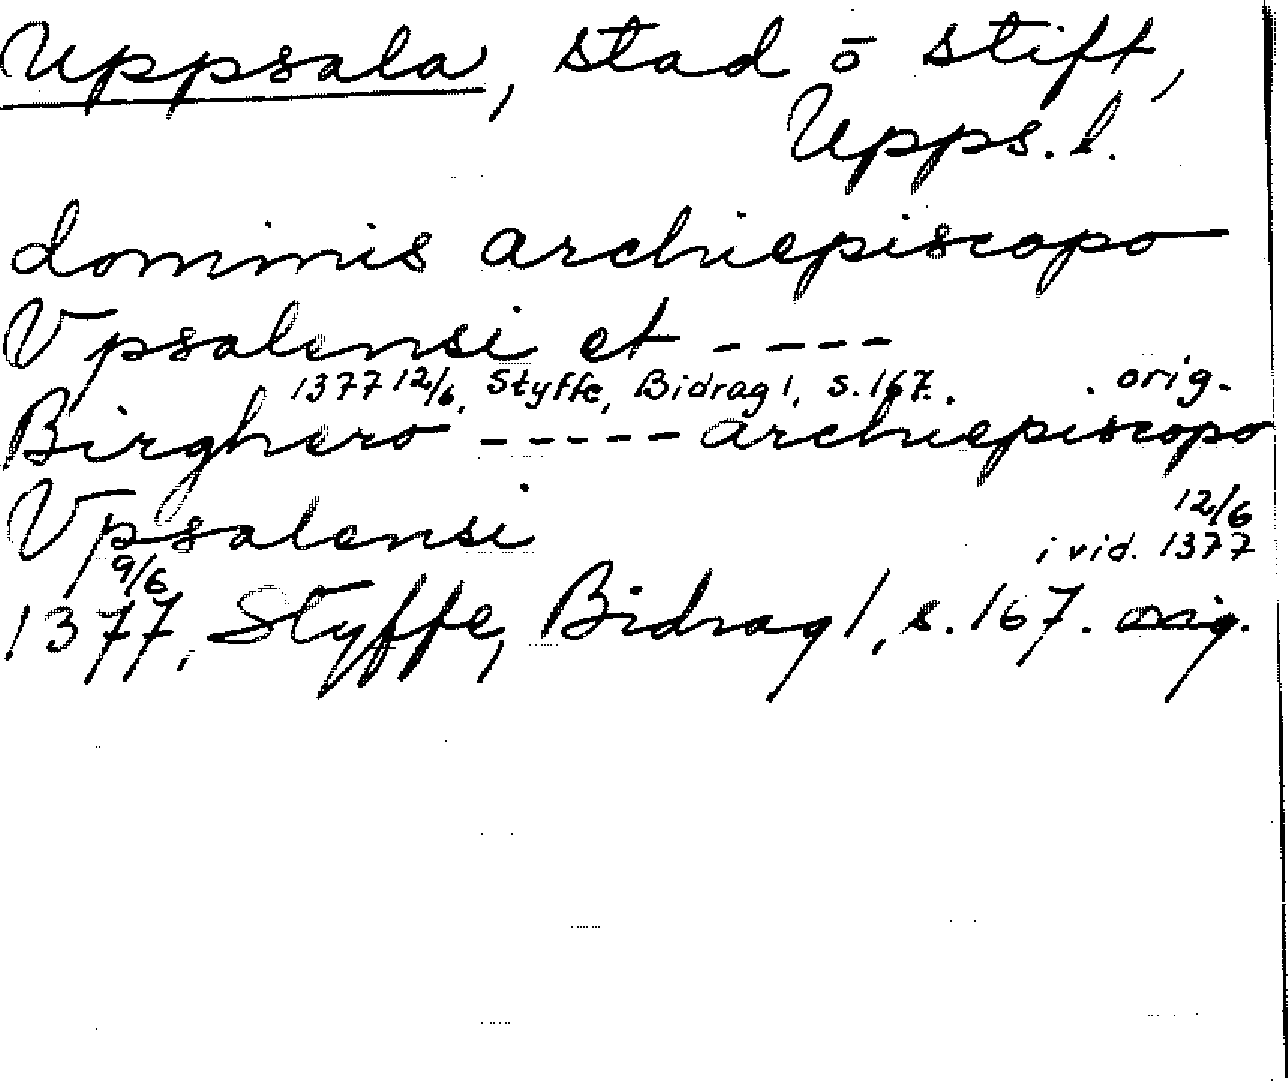 Uppsala, stad ō stift,
Upps. l.
dominis archiepiscopo
Vpsalensi et -----
1377 12/6, Styffe, Bidrag 1, s. 167. . orig.
Birghero ----- archiepiscopo
Vpsalensi
12/6
i vid. 1377
9/6
1377, Styffe, Bidrag 1, s. 167. orig.